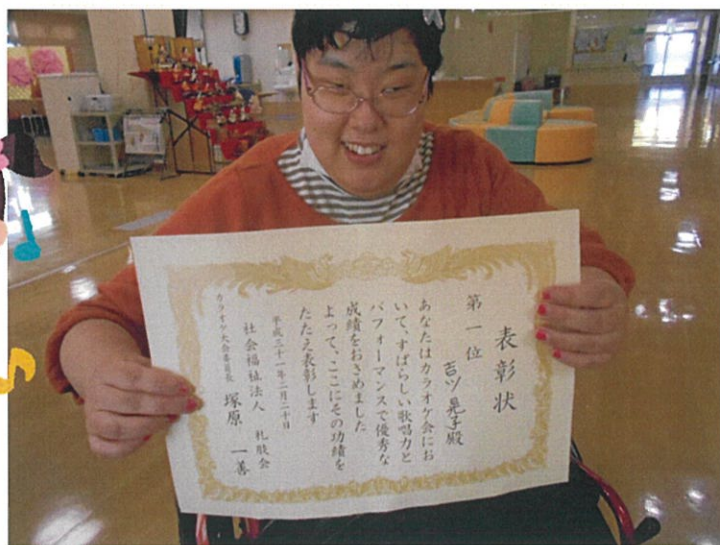 表彰状
第一位
吉ツ晃子殿
あなたはカラオケ会にお
いて、すばらしい歌唱力と
パフォーマンスで優秀な
成績をおさめました
よって、ここにその功績を
たたえ表彰します
平成三十一年二月二十日
社会福祉法人 札肢会
カラオケ大会委員長 塚原 一善